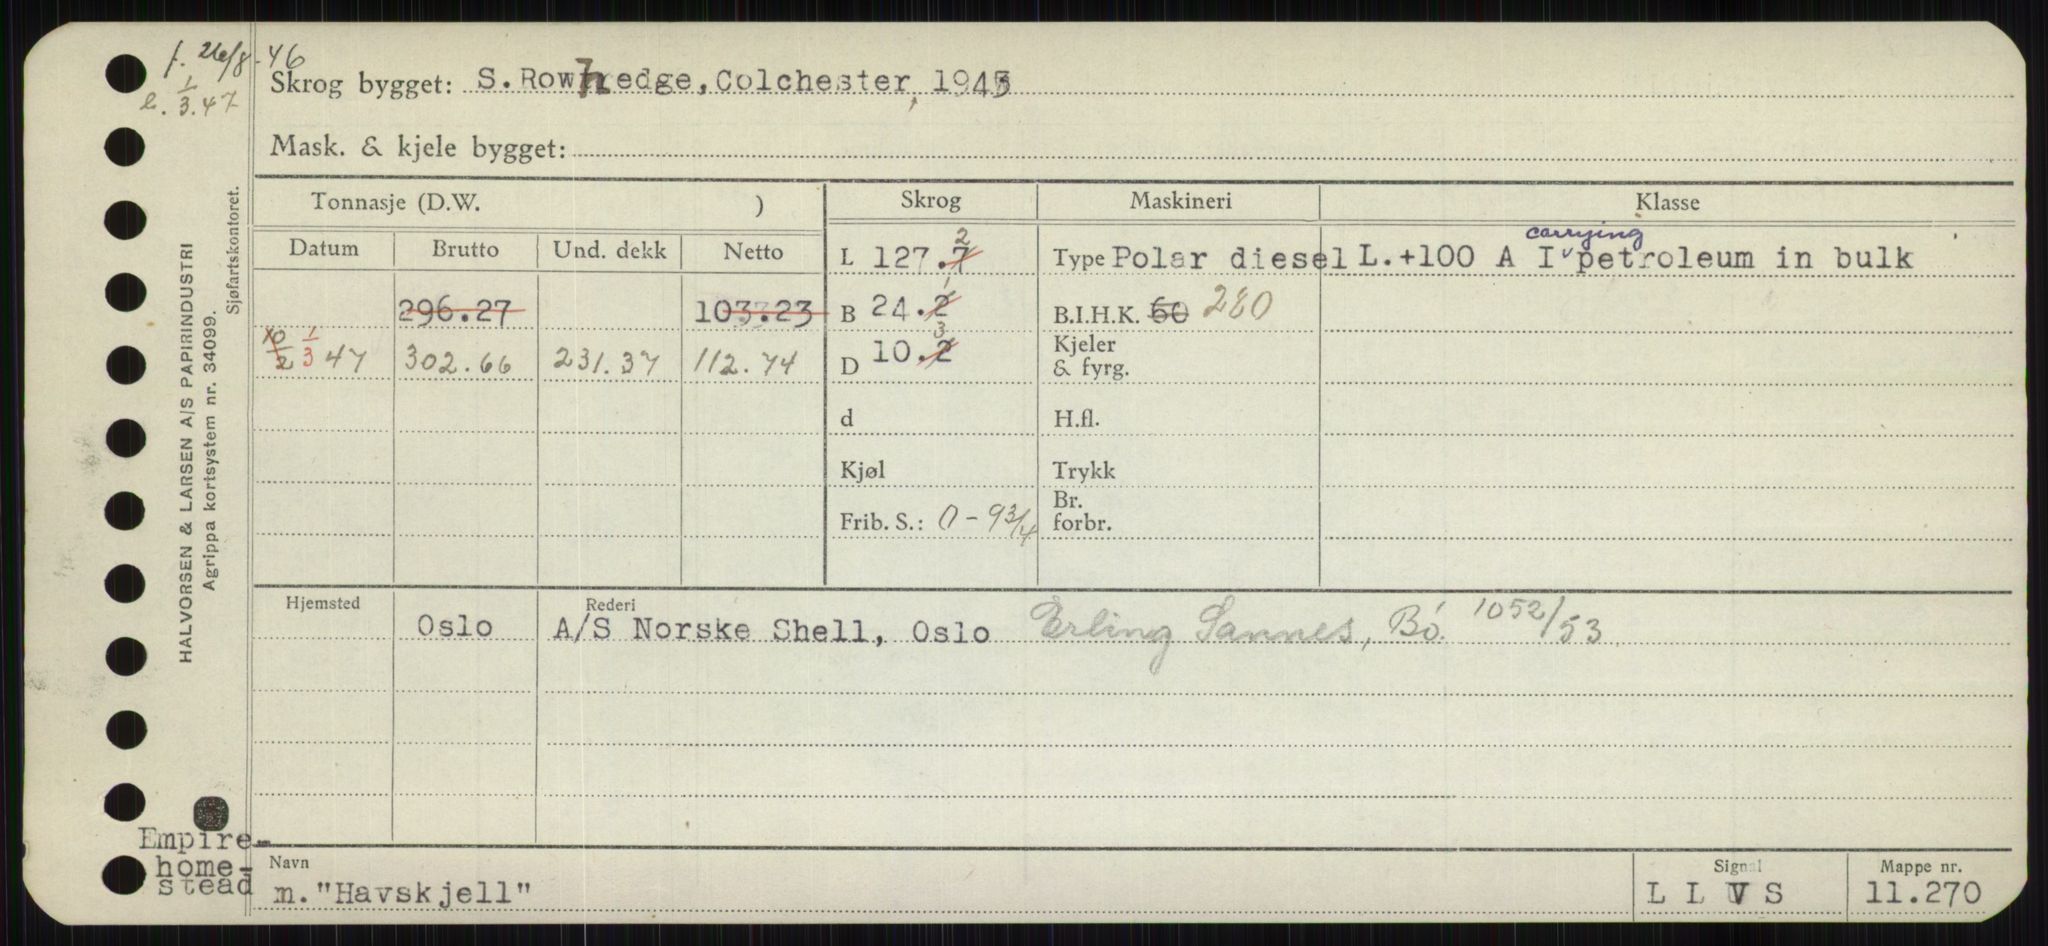 f. 26/8-46
e. 1/3.47
Skrog bygget: S. Rowhedge, Colchester, 1945
Mask. & kjele bygget:
Tonnasje (D.W. ) Skrog Maskineri Klasse
Datum Brutto Und. dekk Netto
L 127.7 2 Type Polar diesel L.+100 A I carrying petroleum in bulk
296.27 103.23 B 24.2 1 B.I.H.K. 60 280
10/2 1/3 47 302.66 231.37 112.74 D 10.2 3 Kjeler & fyrg.
d H.fl.
Kjøl Trykk
Frib. S.: 0-9 3/4 Br. forbr.
Hjemsted Rederi
Oslo A/S Norske Shell, Oslo Erling Sannes, Bö. 1052/53
Navn Signal Mappe nr.
m. "Havskjell" L L V S 11.270
Empire-
home-
stead
HALVORSEN & LARSEN A/S PAPIRINDUSTRI
Agrippa kortsystem nr. 34099.
Sjøfartskontoret.